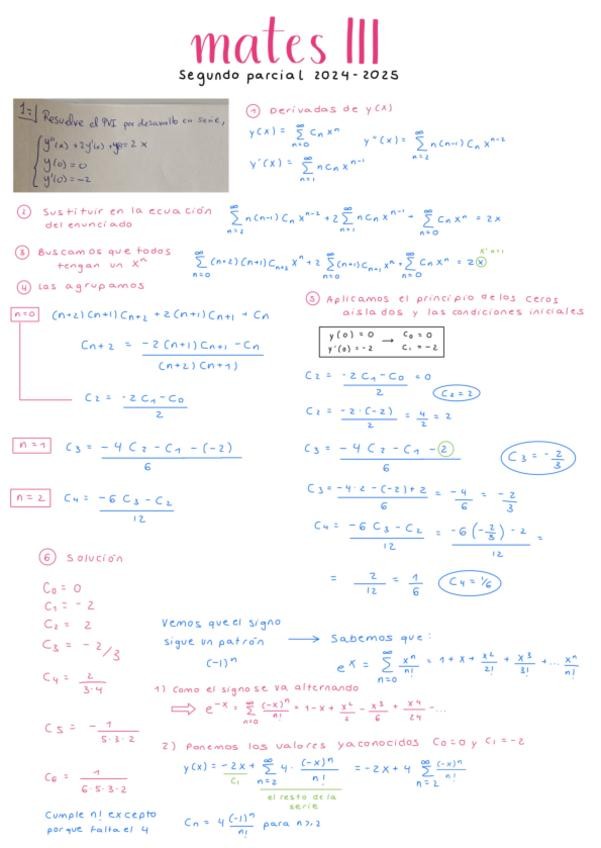 mates III
Segundo parcial 2024-2025
1= Resuelve el PVI por desarrollo en serie,
y''(x) + 2y'(x) + y = 2x
y(0) = 0
y'(0) = -2
① Derivadas de y(x)
y(x) = ∑_{n=0}^{∞} Cn x^n
y''(x) = ∑_{n=2}^{∞} n(n-1) Cn x^{n-2}
y'(x) = ∑_{n=1}^{∞} n Cn x^{n-1}
② Sustituir en la ecuación
del enunciado
∑_{n=2}^{∞} n(n-1) Cn x^{n-2} + 2 ∑_{n=1}^{∞} n Cn x^{n-1} + ∑_{n=0}^{∞} Cn x^n = 2x
③ Buscamos que todos
tengan un x^n
∑_{n=0}^{∞} (n+2)(n+1) C_{n+2} x^n + 2 ∑_{n=0}^{∞} (n+1) C_{n+1} x^n + ∑_{n=0}^{∞} Cn x^n = 2x
④ Las agrupamos
n=0
(n+2)(n+1) C_{n+2} + 2(n+1) C_{n+1} + Cn
C_{n+2} = \frac{-2(n+1) C_{n+1} - Cn}{(n+2)(n+1)}
C2 = \frac{-2C1 - C0}{2}
n=1
C3 = \frac{-4C2 - C1 - (-2)}{6}
n=2
C4 = \frac{-6C3 - C2}{12}
⑤ Aplicamos el principio de los ceros
aislados y las condiciones iniciales
y(0) = 0 → C0 = 0
y'(0) = -2 C1 = -2
C2 = \frac{-2C1 - C0}{2} = 0
C2 = 2
C2 = \frac{-2·(-2)}{2} = \frac{4}{2} = 2
C3 = \frac{-4C2 - C1 - 2}{6}
C3 = -\frac{2}{3}
C3 = \frac{-4·2 - (-2) + 2}{6} = \frac{-4}{6} = \frac{-2}{3}
C4 = \frac{-6C3 - C2}{12} = \frac{-6(-\frac{2}{3}) - 2}{12} =
= \frac{2}{12} = \frac{1}{6}
C4 = 1/6
⑥ Solución
C0 = 0
C1 = -2
C2 = 2
C3 = -2/3
C4 = \frac{2}{3·4}
C5 = -\frac{1}{5·3·2}
C6 = \frac{1}{6·5·3·2}
Cumple n! excepto
porque falta el 4
Vemos que el signo
sigue un patrón
(-1)^n
→ Sabemos que:
e^x = ∑_{n=0}^{∞} \frac{x^n}{n!} = 1 + x + \frac{x^2}{2!} + \frac{x^3}{3!} + ... \frac{x^n}{n!}
1) Como el signo se va alternando
⇒ e^{-x} = ∑_{n=0}^{∞} \frac{(-x)^n}{n!} = 1 - x + \frac{x^2}{2} - \frac{x^3}{6} + \frac{x^4}{24} - ...
2) Ponemos los valores ya conocidos C0 = 0 y C1 = -2
y(x) = -2x + ∑_{n=2}^{∞} 4 · \frac{(-x)^n}{n!} = -2x + 4 ∑_{n=2}^{∞} \frac{(-x)^n}{n!}
C1
el resto de la
serie
Cn = 4 \frac{(-1)^n}{n!} para n≥2